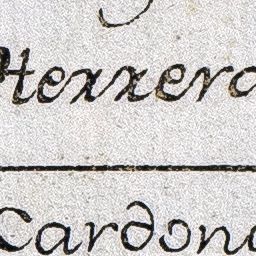 Herrera
Cardona